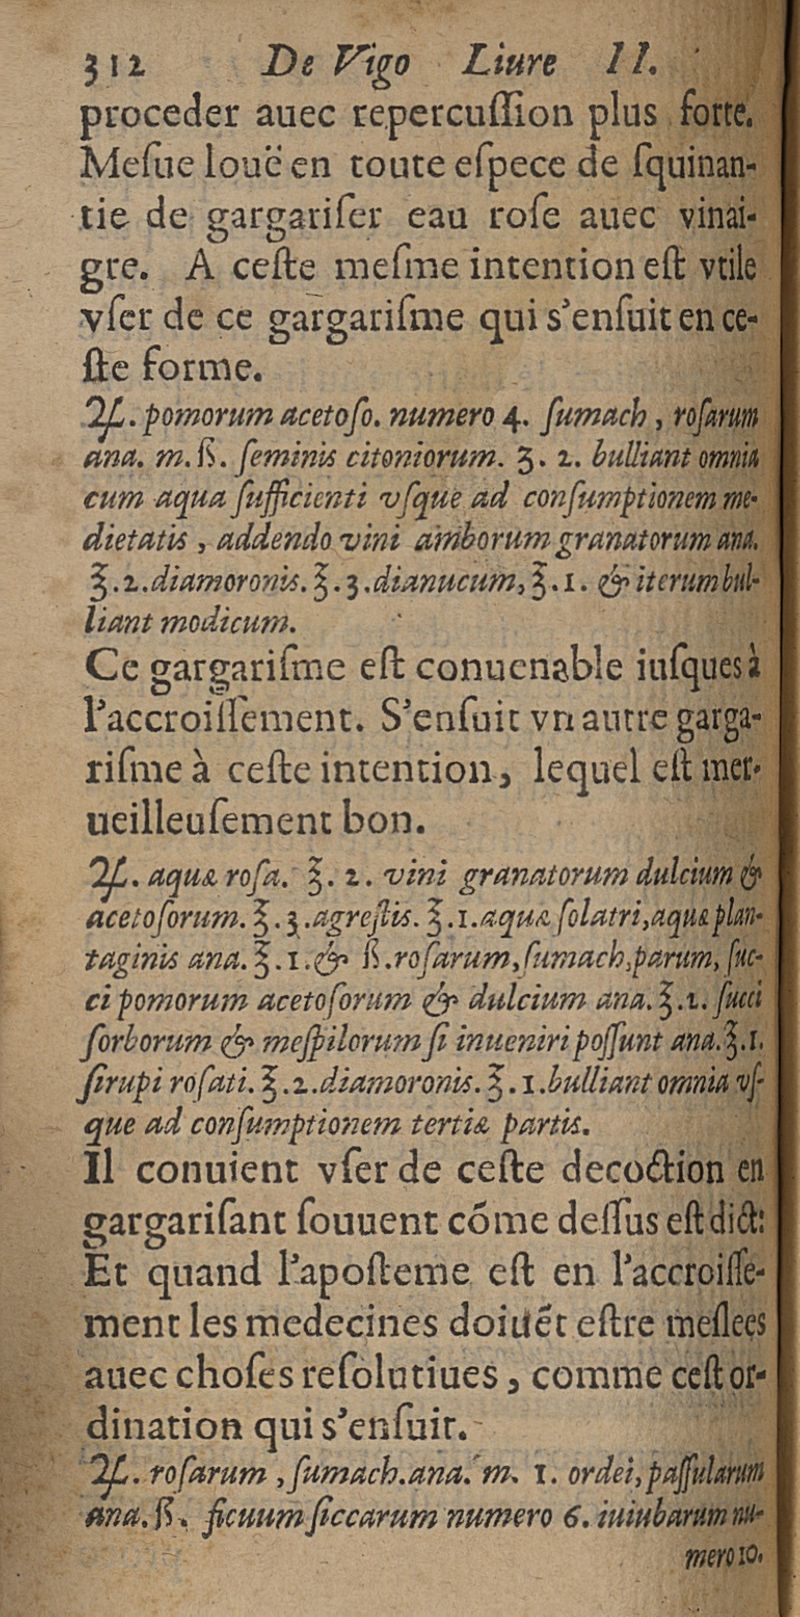 312 De Vigo Liure II.
proceder auec repercuſſion plus forte.
Meſue louë en toute eſpece de ſquinan-
tie de gargariſer eau roſe auec vinai-
gre. A ceſte meſme intention eſt vtile
vſer de ce gargariſme qui s'enſuit en ce-
ſte forme.
♃. pomorum acetoſo. numero 4. ſumach, roſarum
ana. m.ß. ſeminis citoniorum. ʒ. 2. bulliant omnia
cum aqua ſufficienti vſque ad conſumptionem me-
dietatis, addendo vini amborum granatorum ana.
℥.2.diamoronis.℥.3.dianucum,℥.1. & iterum bul-
liant modicum.
Ce gargariſme eſt conuenable iuſques à
l'accroiſſement. S'enſuit vn autre garga-
riſme à ceſte intention, lequel eſt mer-
ueilleuſement bon.
♃. aquæ roſa. ℥. 2. vini granatorum dulcium &
acetoſorum.℥.3.agreſtis.℥.1.aquæ ſolatri,aquæ plan-
taginis ana.℥.1.& ß.roſarum,ſumach,parum, ſuc-
ci pomorum acetoſorum & dulcium ana.℥.1. ſucci
ſorborum & meſpilorum ſi inueniri poſſunt ana.℥.1.
ſirupi roſati.℥.2.diamoronis.℥.1.bulliant omnia vſ-
que ad conſumptionem tertiæ partis.
Il conuient vſer de ceſte decoction en
gargariſant ſouuent cõme deſſus eſt dict:
Et quand l'apoſteme eſt en l'accroiſſe-
ment les medecines doiuẽt eſtre meſlees
auec choſes reſolutiues, comme ceſt or-
dination qui s'enſuit.
♃. roſarum, ſumach.ana. m. 1. ordei, paſſularum
ana.ß. ficuum ſiccarum numero 6. iuiubarum nu-
mero 10.